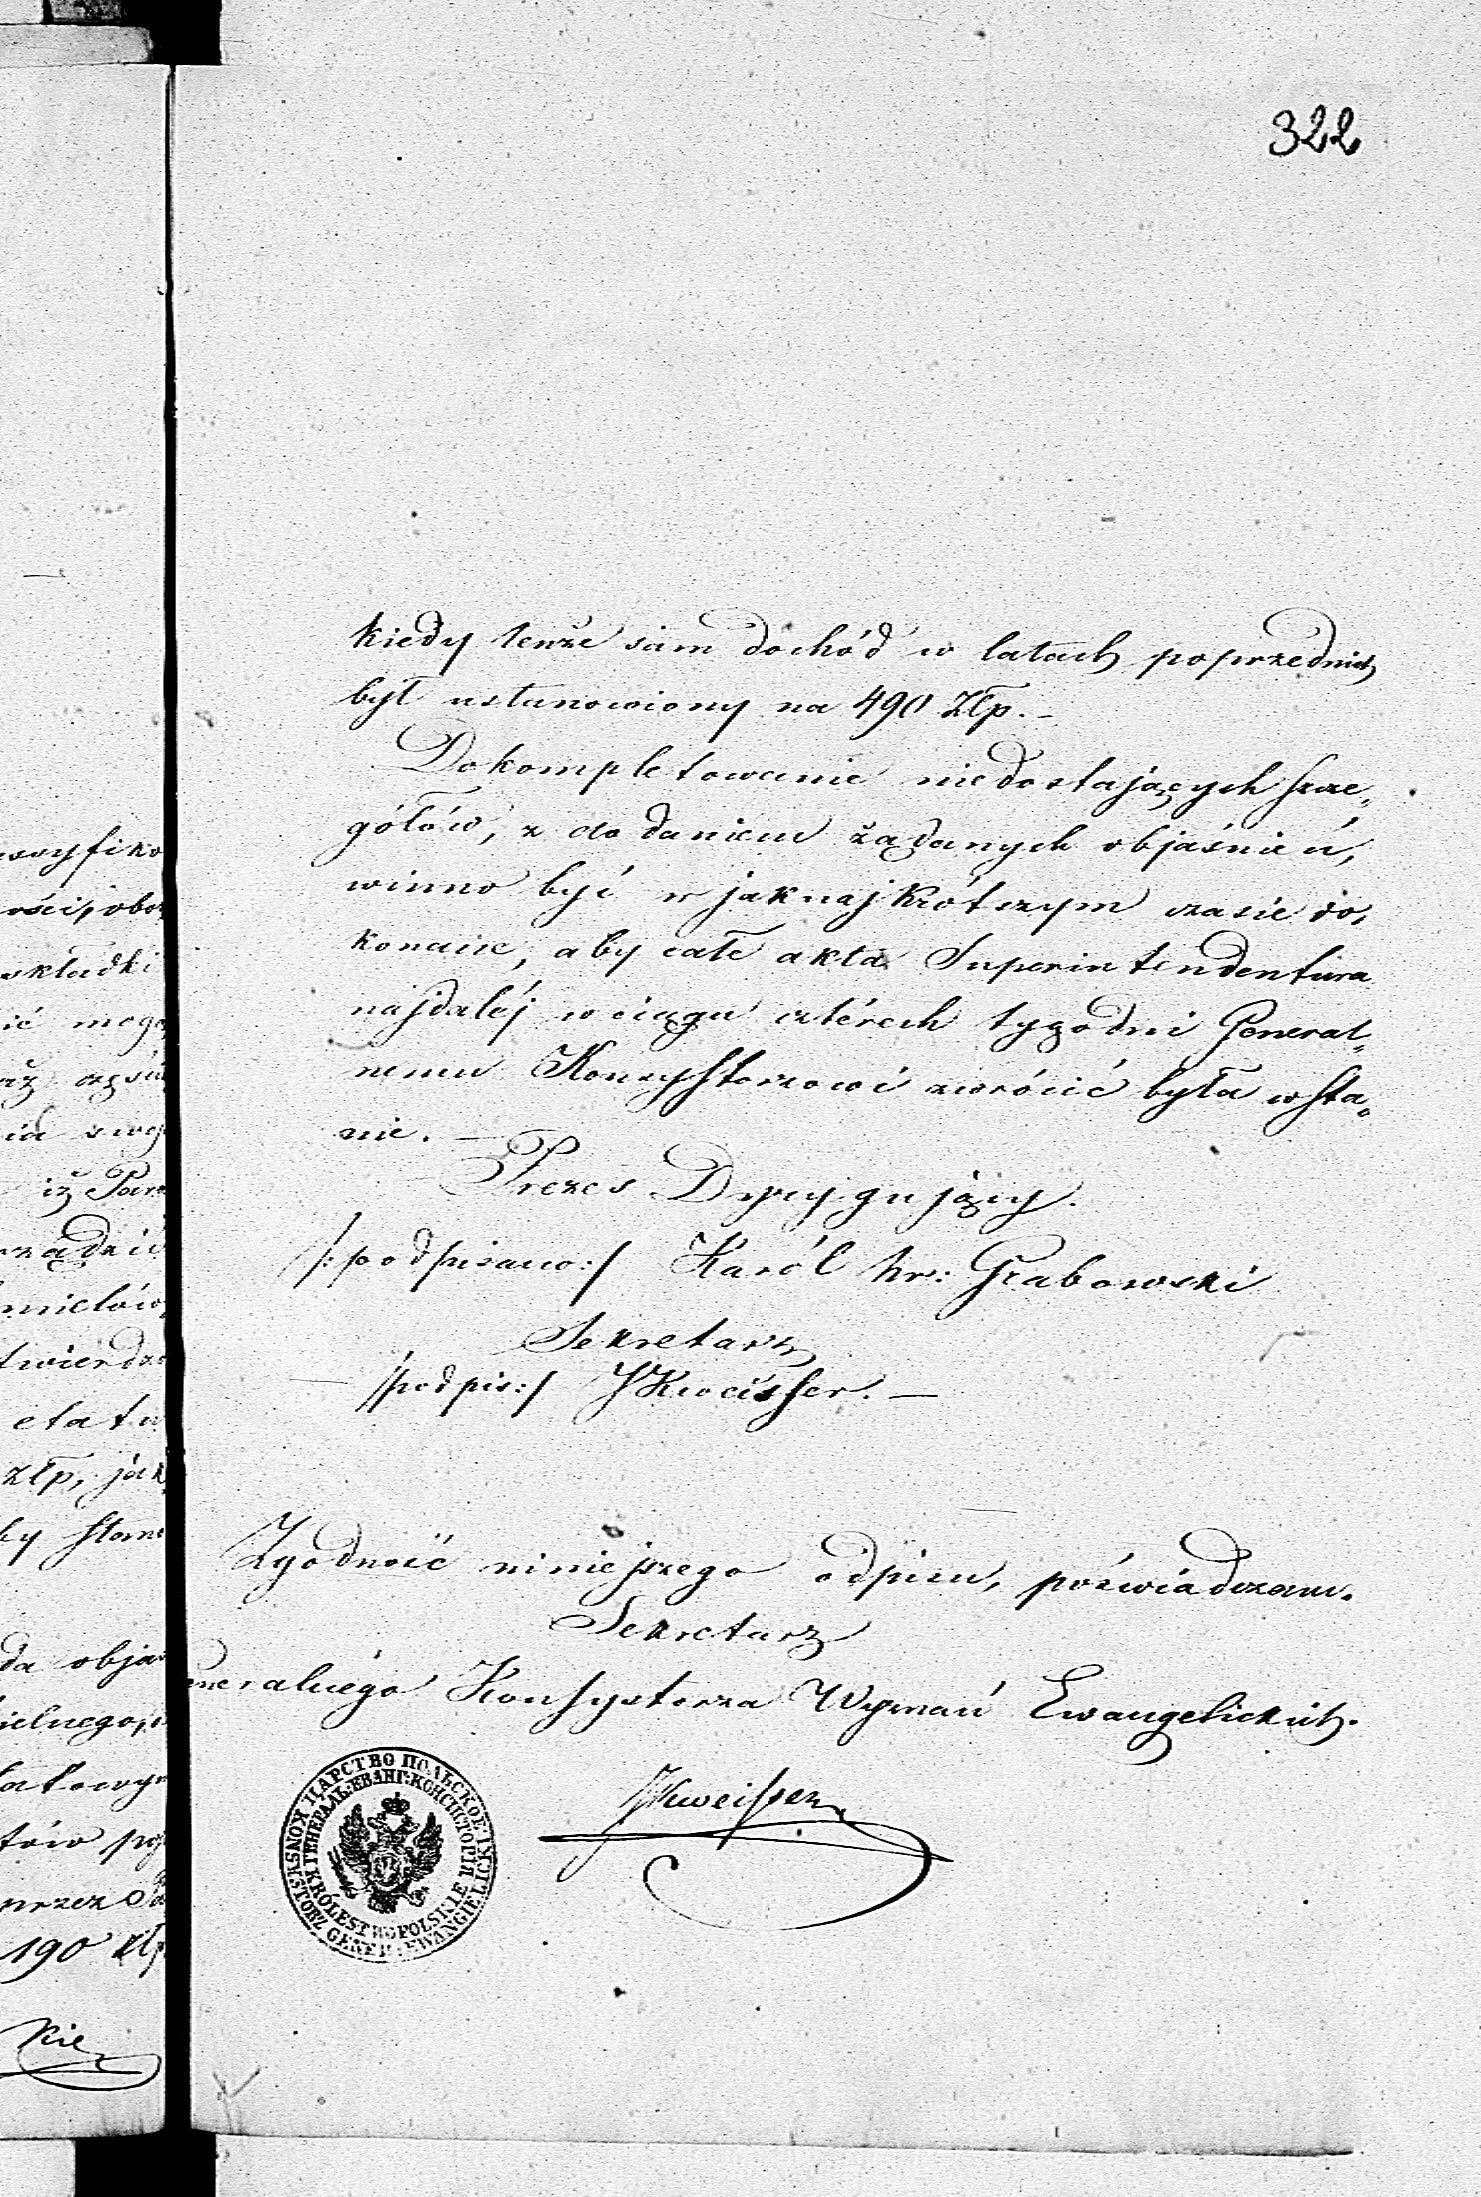 322
kiedy tenże sam dochód w latach poprzednich
był ustanowiony na 490 Złp. –
Dokompletowanie niedostających szcze„
gółów, z dodaniem żądanych objaśnień,
winno być w jaknajkrótszym czasie do„
konane, aby całe akta Superintendentura
najdaléj w ciągu cztérech tygodni General„
nemu Konsystorzowi zwrócić była w sta„
nie. –
Prezes Dyrygujący.
/:podpisano:/ Karól hr: Grabowski
Sekretarz
– /podpis:/ JKweisser. –
Zgodność niniejszego odpisu, poświadczam.
Sekretarz
neralnego Konsystorza Wyznań Ewangelickich.
JKweisser
ЦАРСТВО ПОЛЬСКОЕ
ГЕНЕРАЛЬ: ЕВАНГ: КОНСИСТОРІЯ
KRÓLESTWO POLSKIE
KONSYSTORZ GENER: EWANGIELICKI
wyfiko
ości, obo
składki
ić mogą
aż
ia swoj
iż Par
rządzić
mielów
twierdze
etatu
złp, jak
by stano
da objaś
ielnego,
tów
przez
190 złp
kie